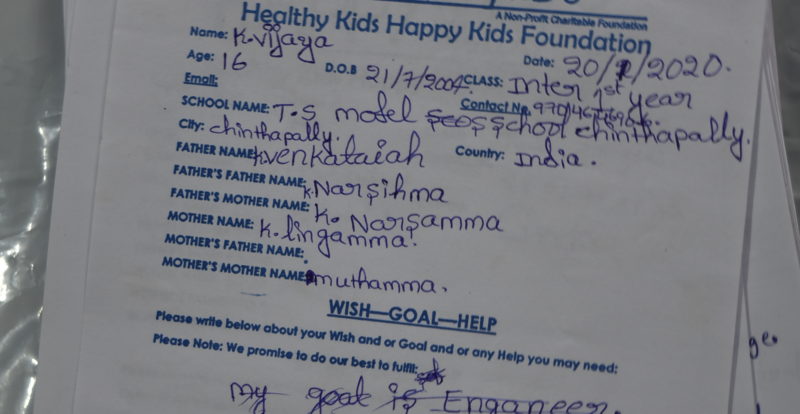 A Non-Profit Charitable Foundation
Healthy Kids Happy Kids Foundation
Name: K.vijaya
Age: 16 D.O.B 21/7/2004 CLASS: Inter 1st year Date: 20/2/2020.
Email: Contact No.
SCHOOL NAME: T.S model school chinthapally.
City: chinthapally. Country: India.
FATHER NAME: K.venkataiah
FATHER'S FATHER NAME: K.Narsihma
FATHER'S MOTHER NAME: K. Narsamma
MOTHER NAME: K. lingamma.
MOTHER'S FATHER NAME:
MOTHER'S MOTHER NAME: muthamma.
WISH—GOAL—HELP
Please write below about your Wish and or Goal and or any Help you may need:
Please Note: We promise to do our best to fulfil:
My goal is Enganeer.